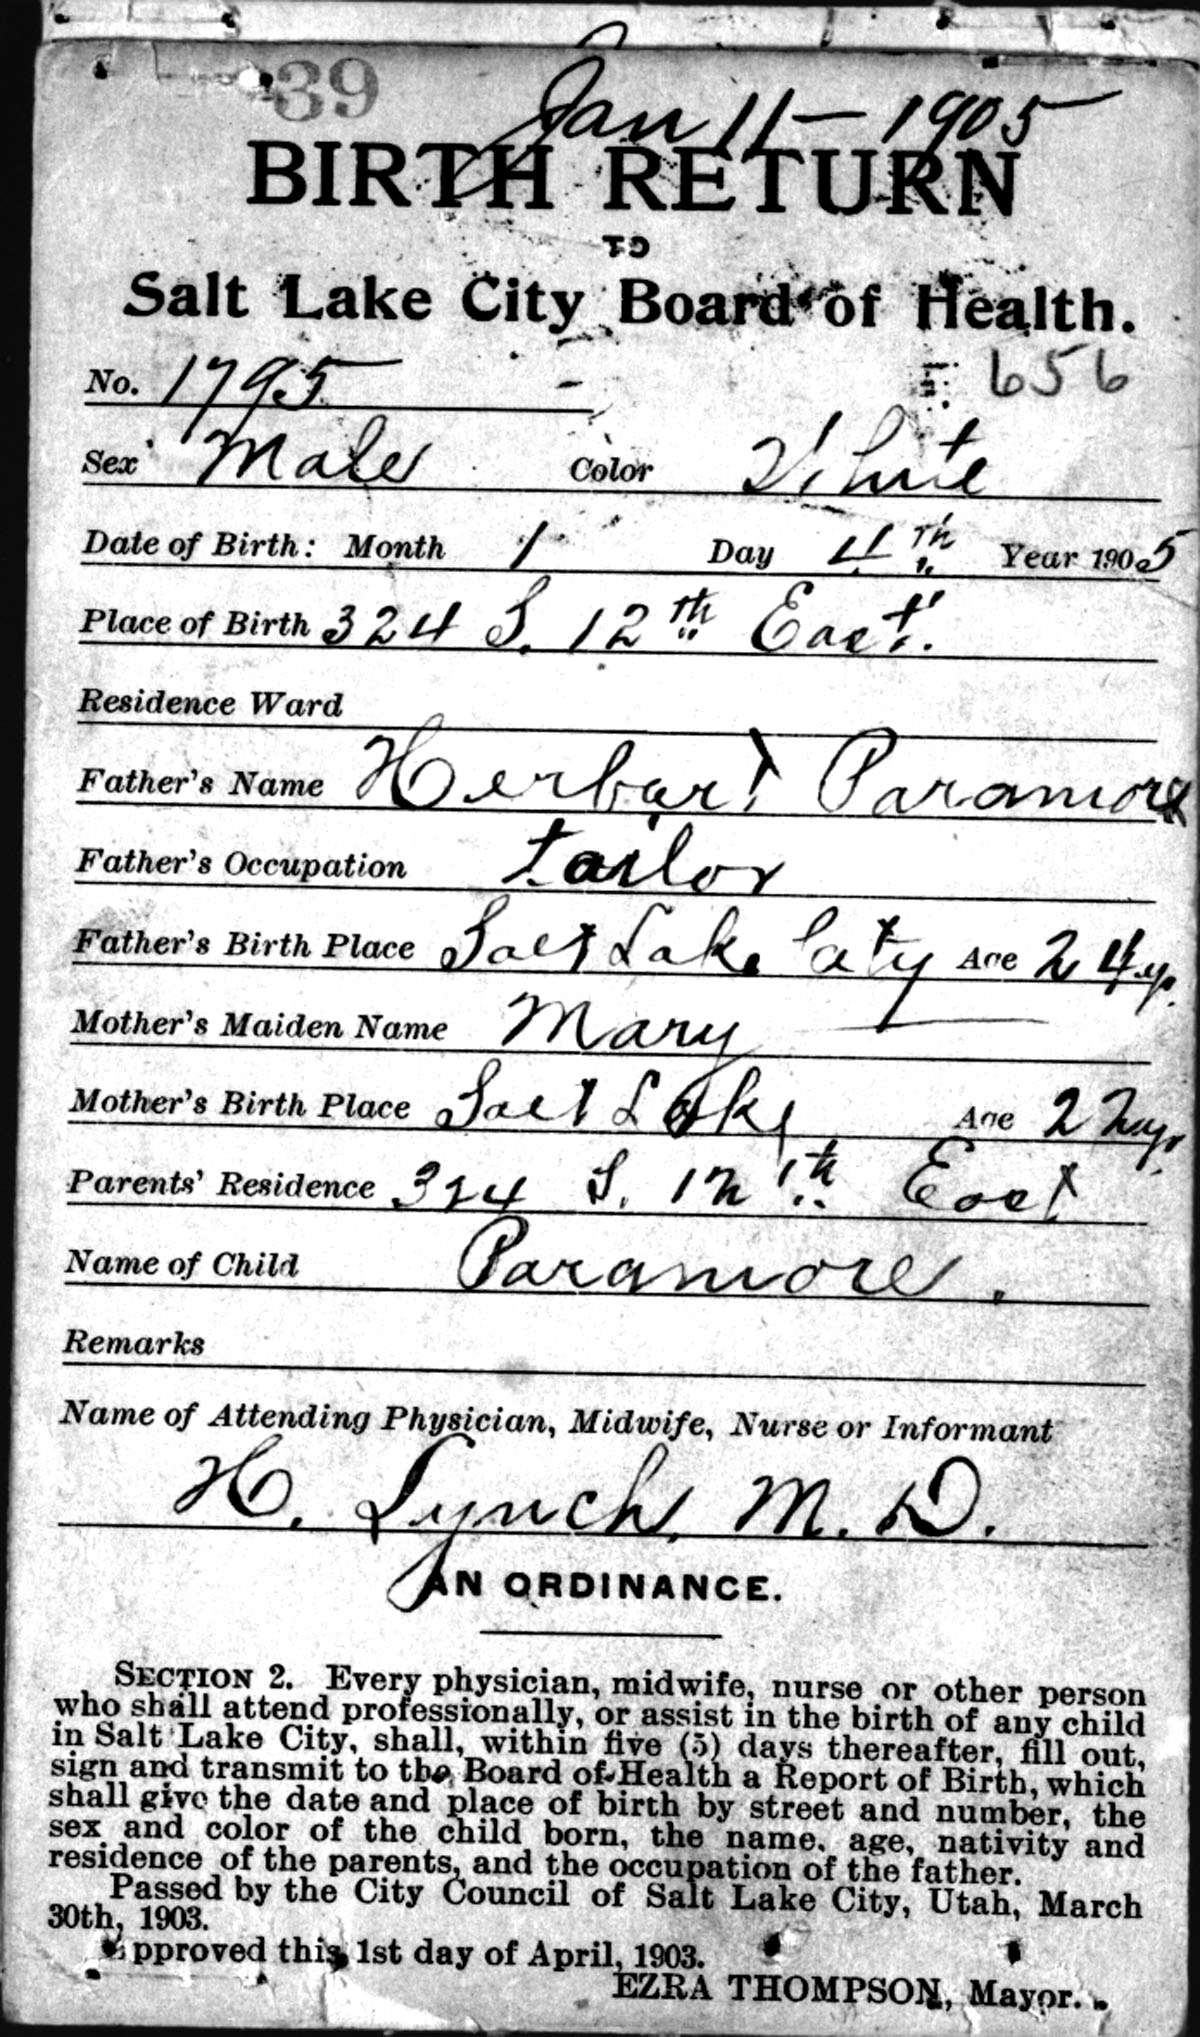 39
Jan 11 - 1905
BIRTH RETURN
TO
Salt Lake City Board of Health.
No. 1795
656
Sex Male Color White
Date of Birth: Month 1 Day 4th Year 1905
Place of Birth 324 S. 12th East.
Residence Ward
Father's Name Herbart Paramore
Father's Occupation tailor
Father's Birth Place Salt Lake City Age 24 y.
Mother's Maiden Name Mary —
Mother's Birth Place Salt Lake Age 22 yr.
Parents' Residence 324 S. 12th East
Name of Child Paramore.
Remarks
Name of Attending Physician, Midwife, Nurse or Informant
H. Lynch, M. D.
AN ORDINANCE.
SECTION 2. Every physician, midwife, nurse or other person
who shall attend professionally, or assist in the birth of any child
in Salt Lake City, shall, within five (5) days thereafter, fill out,
sign and transmit to the Board of Health a Report of Birth, which
shall give the date and place of birth by street and number, the
sex and color of the child born, the name, age, nativity and
residence of the parents, and the occupation of the father.
Passed by the City Council of Salt Lake City, Utah, March
30th, 1903.
Approved this 1st day of April, 1903.
EZRA THOMPSON, Mayor.